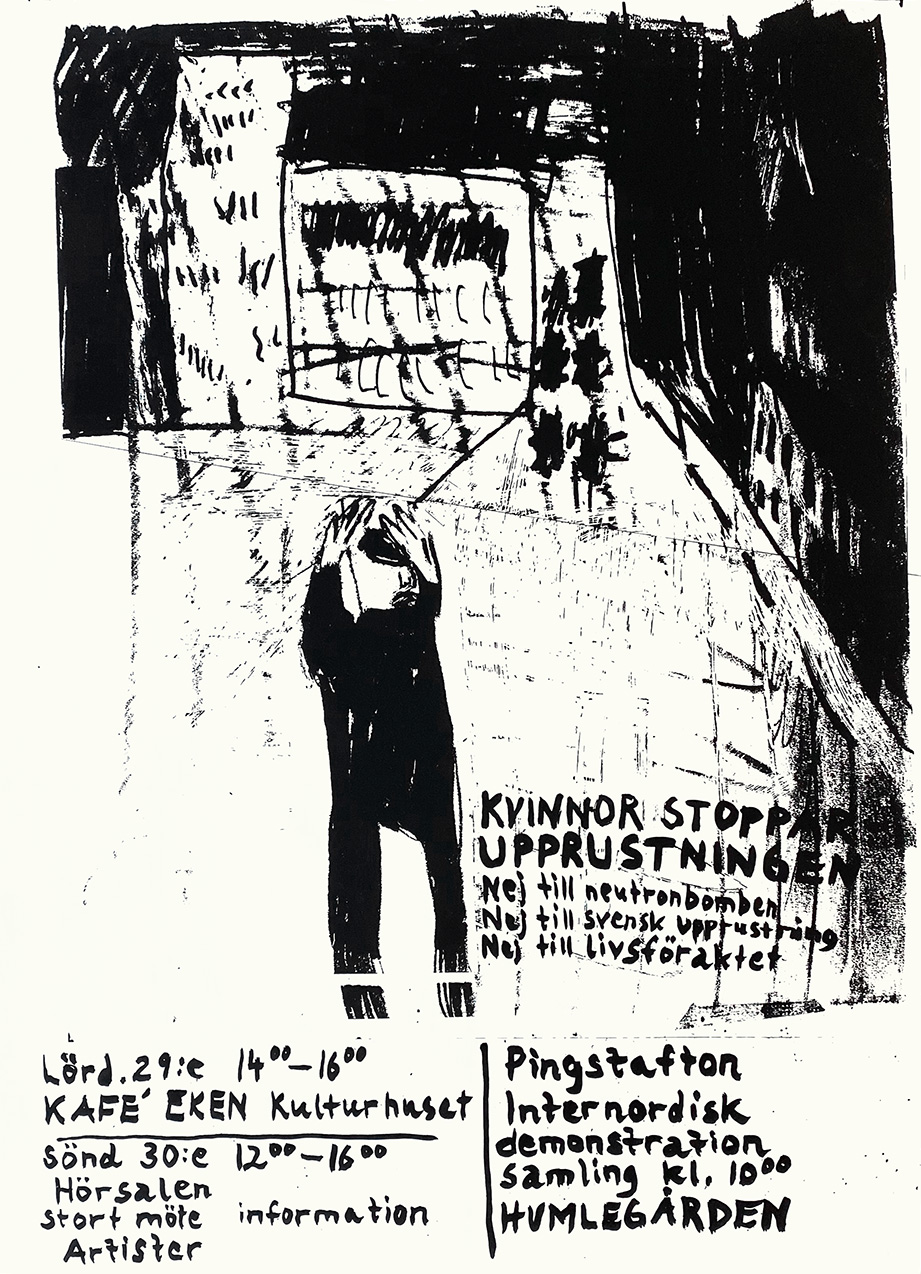 KVINNOR STOPPAR
UPPRUSTNINGEN
Nej till neutronbomben
Nej till svensk upprustning
Nej till livsföraktet
Lörd. 29:e 14⁰⁰–16⁰⁰
KAFÉ EKEN Kulturhuset
Sönd 30:e 12⁰⁰–16⁰⁰
Hörsalen
stort möte information
Artister
Pingstafton
Internordisk
demonstration
samling kl. 10⁰⁰
HUMLEGÅRDEN